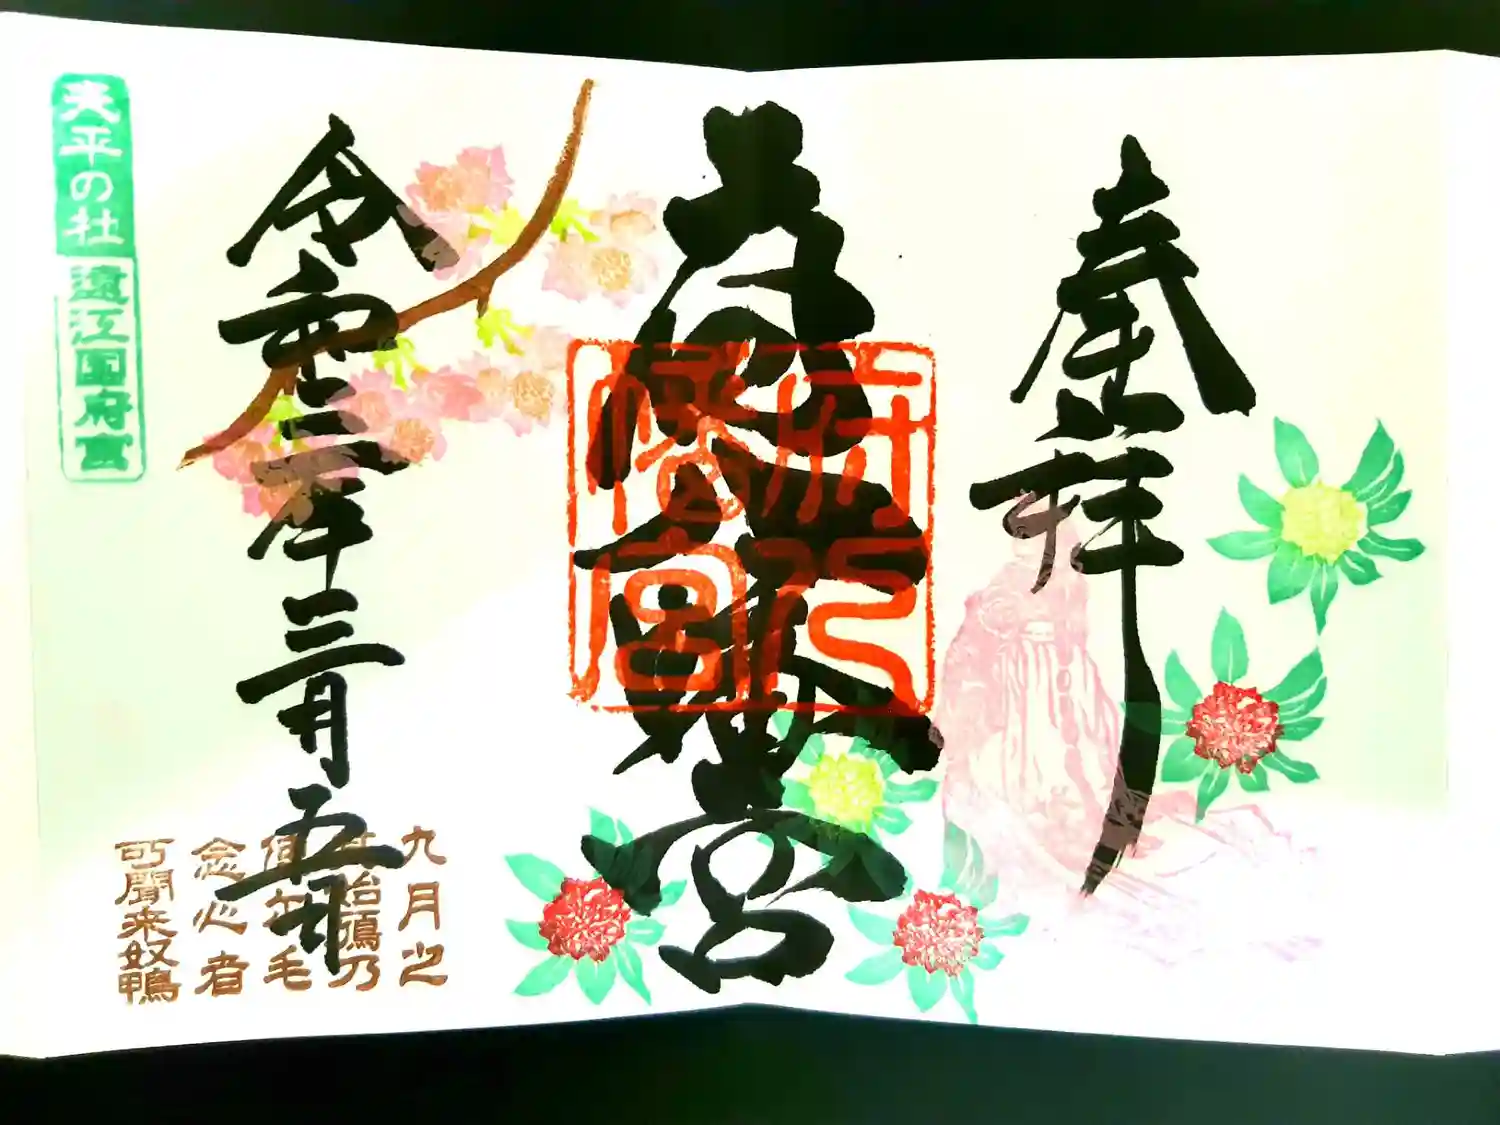 奉拝
八幡宮
府八
幡宮
令和三年三月五日
九月之
其始鴈乃
使尓毛
念心者
可聞来奴鴨
天平の社
遠江国府宮